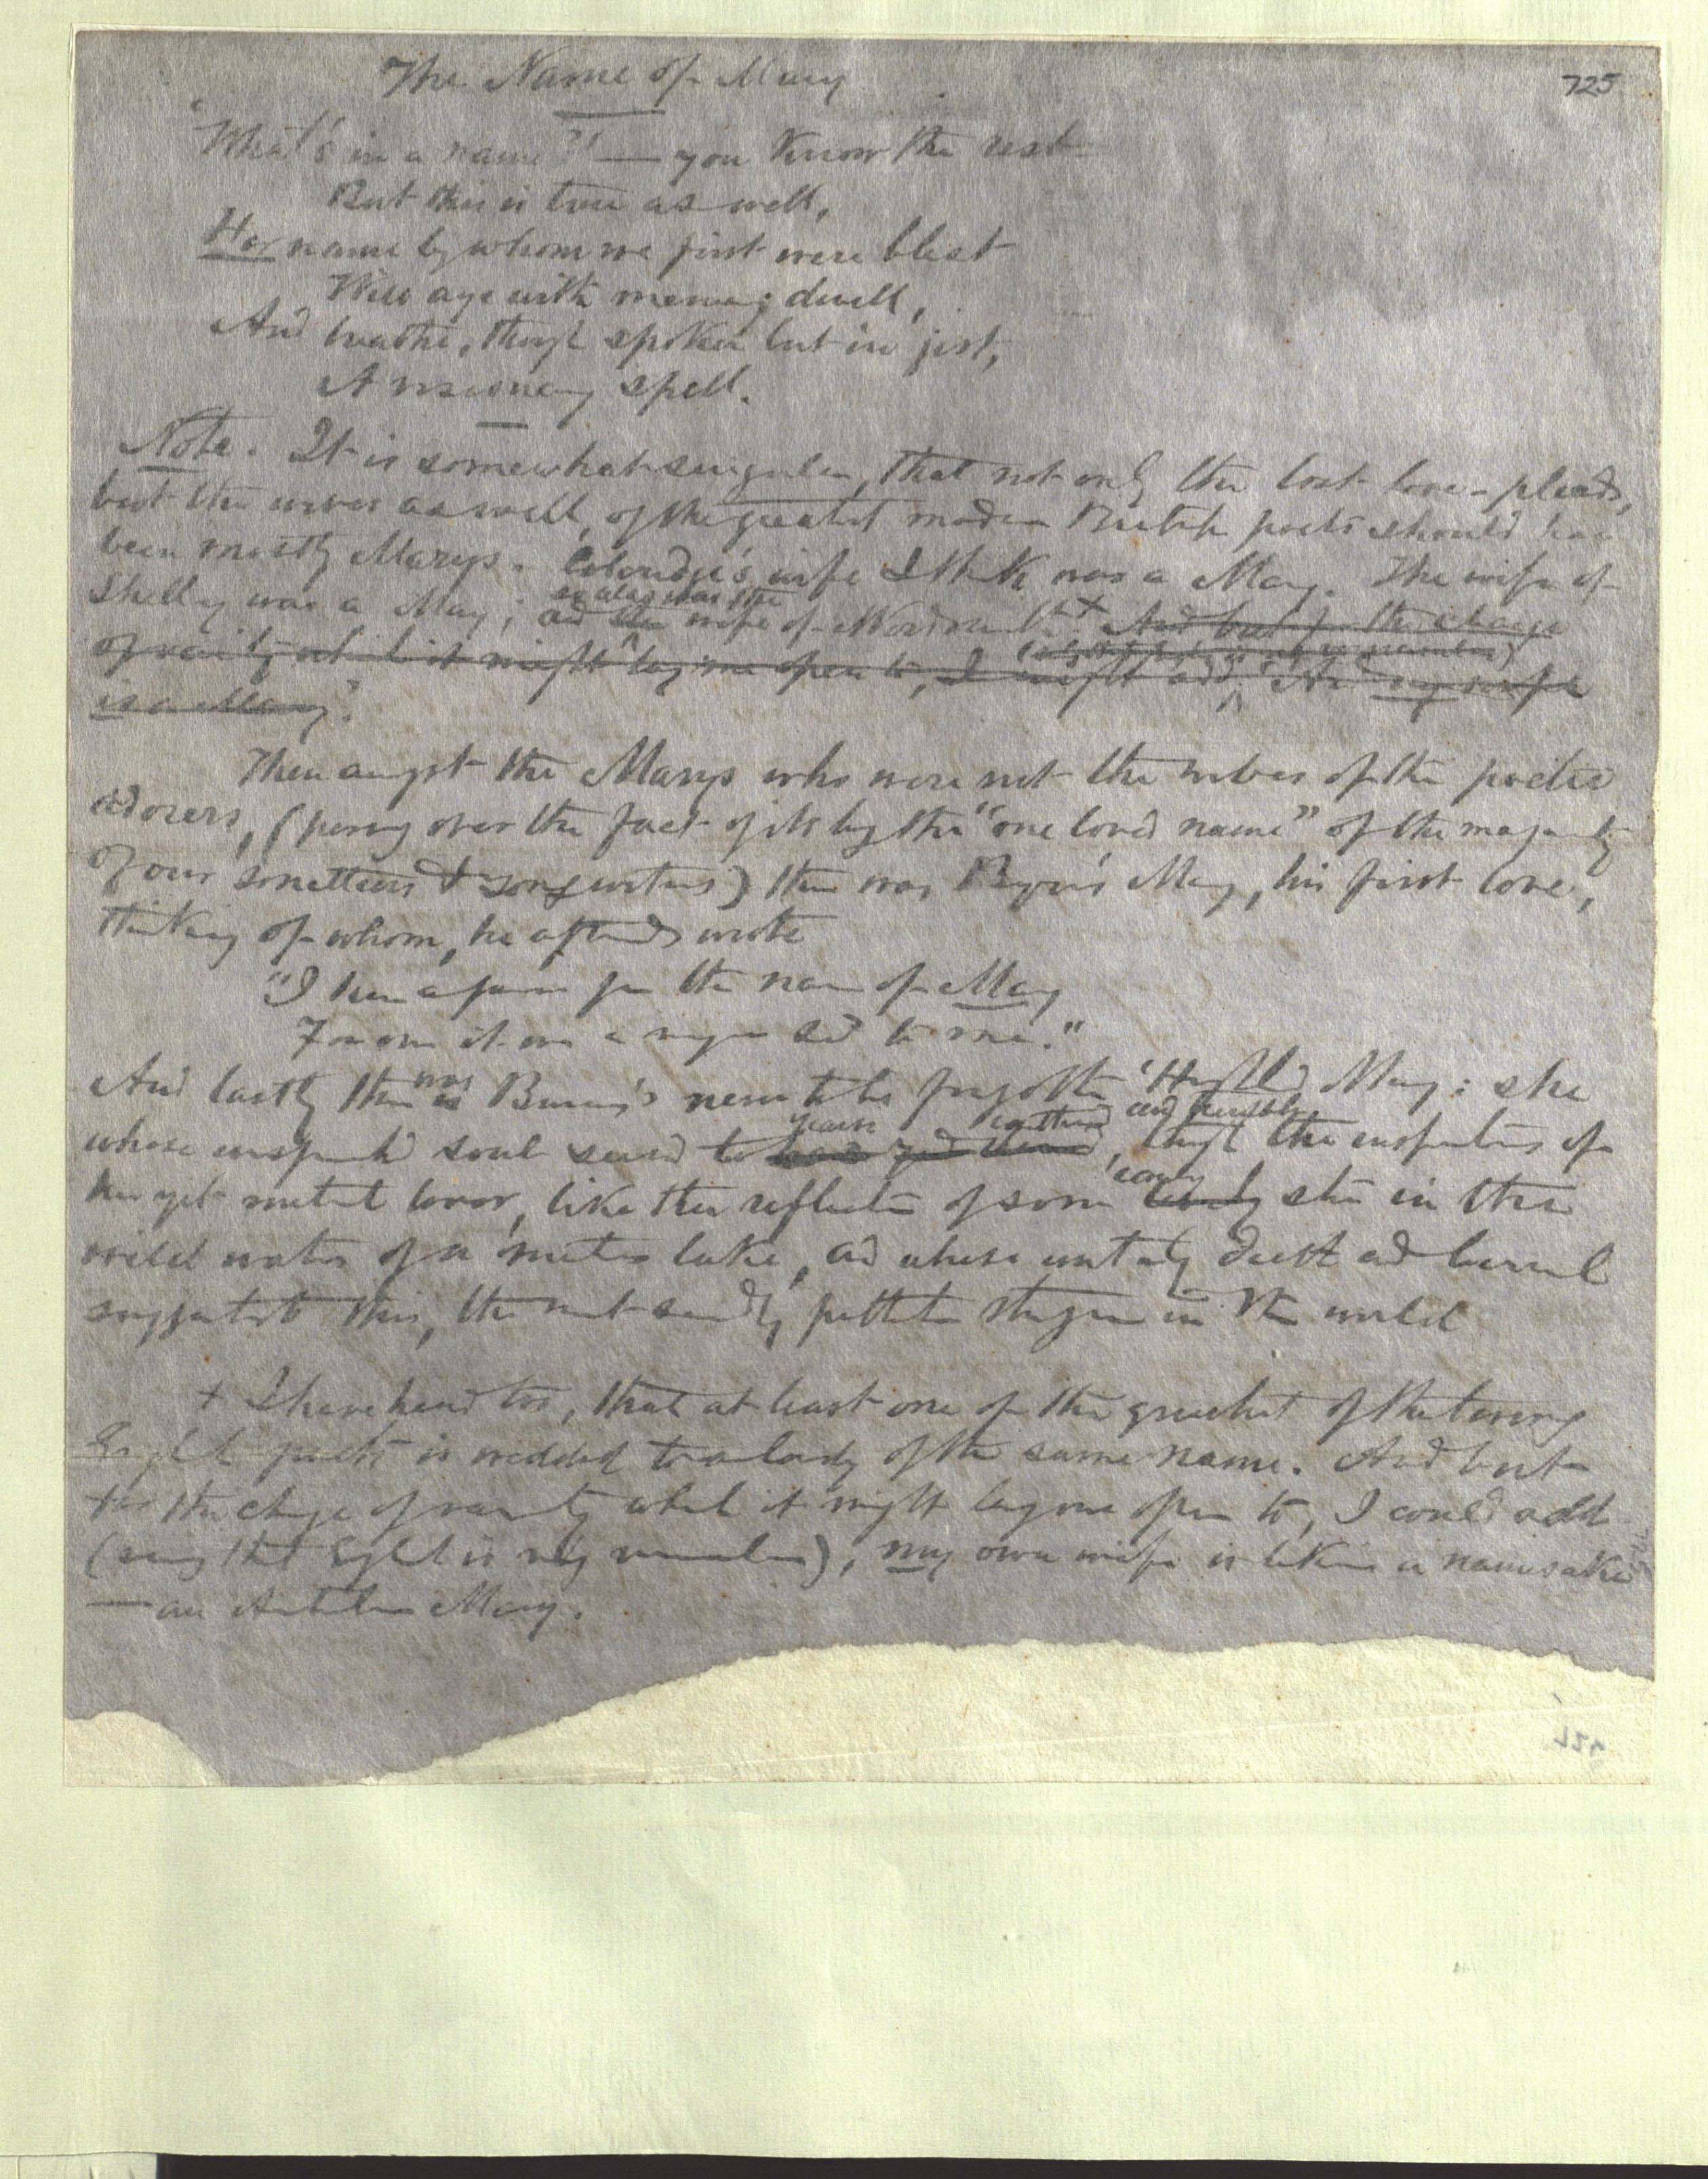 725
The Name of Mary
"What's in a name?" — you know the rest
But this is true as well,
Her name by whom we first were blest
Will aye with memory dwell,
And breathe, though spoken but in jest,
A visionary spell.
Note. It is somewhat singular, that not only the lost love-pleads,
but the wives as well, of the greatest modern British poets should have
been mostly Marys. Coleridge's wife I think was a Mary. The wife of
so also was the
Shelley was a Mary; and the wife of Wordsworth.+ And but for the charge
of vanity which it might lay me open to, I might add, "And my wife
is a Mary".
Then amgst the Marys who were not the wives of their poetic
adorers, (passing over the fact of its being the "one loved name" of the majority
of our sonetteers & songwriters) there was Byron's Mary, his first love,
thinking of whom, he afterwards wrote
"I have a passion for the name of Mary
For once it was a magic sound to me."
was
And lastly there is Burns's never to be forgotten 'Highland Mary: she
and humble
whose soul seemed to, though the of
her yet lover, like the reflection of some lovely star in the
wild water of a lake, and whose untimely death and burial
suggested this, the most in the world
+ I have heard too, that at least one of the greatest of the living
English poets is wedded to a lady of the same name. And but
for the charge of vanity which it might lay me open to, I could add
(seeing that is my), my own wife is likewise a namesake
— an Australian Mary.